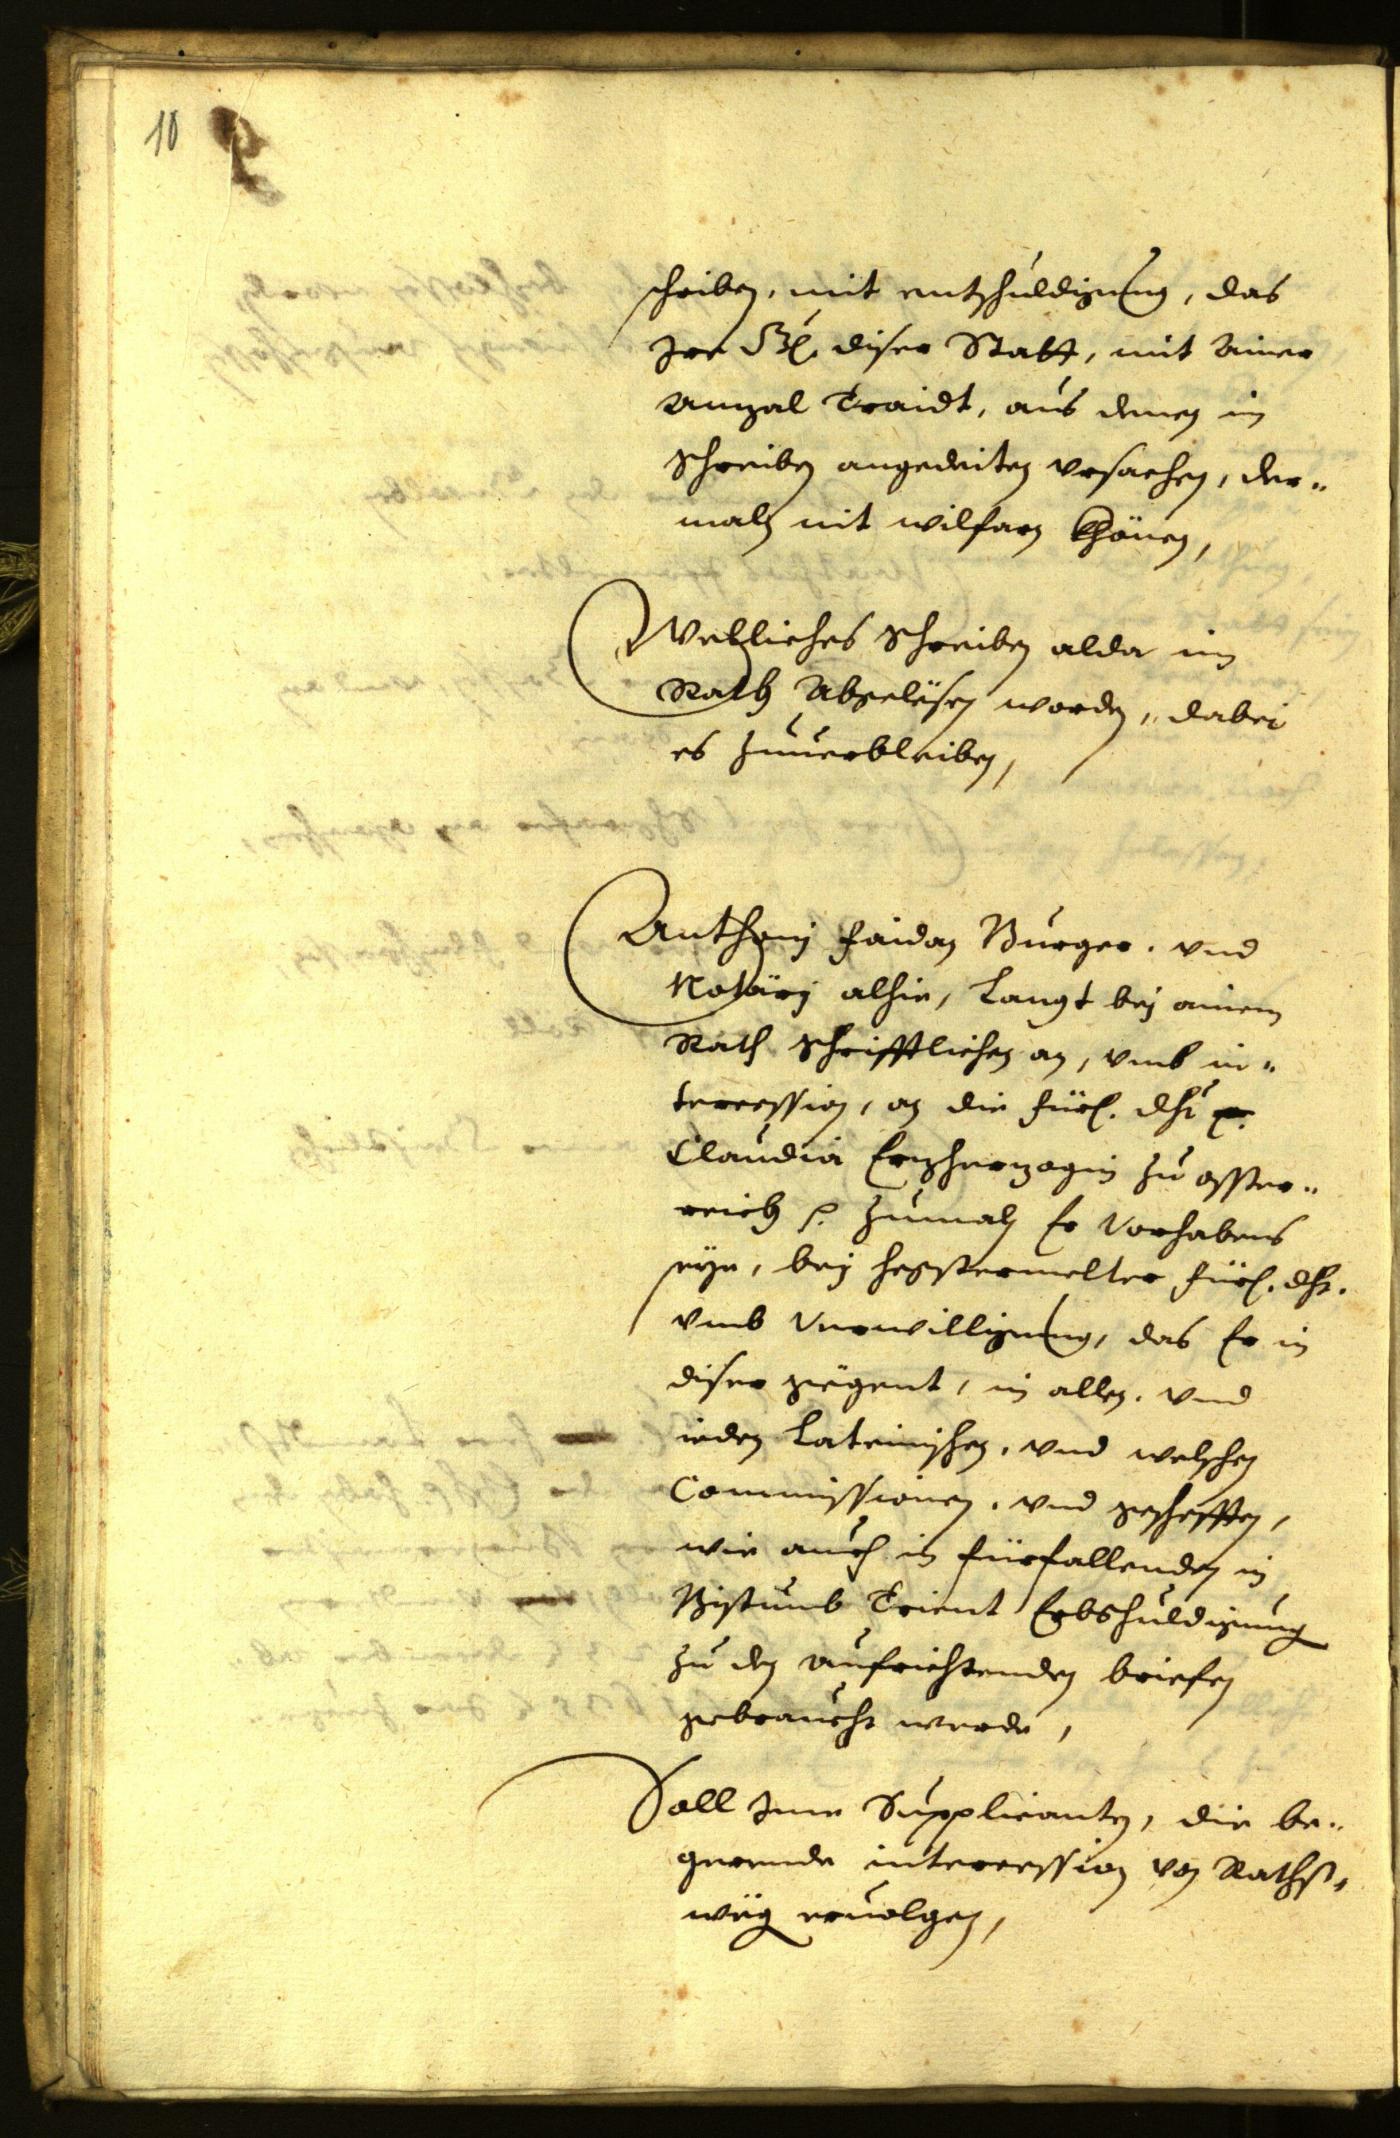 10
schreiben, mit entschuldigung, das
Ire Gl. diser Statt, mit Ainer
Anzal Traidt, aus denen in
schreiben angedeiten vrsachen, der¬
maln nit wilfarn khönen,
Welliches schreiben alda im
Rath Abgelësen worden, dabei
es zuuerbleiben,
Anthonj Faidan Burger. vnd
Notärj alhie, langt bej ainem
Rath schrifftlichen an, vmb in¬
tercession, an die Fürl. dht p.
Claudia Erzherzogin zu osster¬
reich p. zumaln Er Vorhabens
seye, bej hegstermelter Fürl. dht.
vmb Verwilligung, das Er in
diser gegent, in allen. vnd
ieden Lateinischen, vnd welschen
Commissionen. vnd geschefften,
wie auch in fürfallenden in
Bistumb Trient Erbshuldigung
zu den aufrichtenden briefen
gebraucht werde,
Soll Ime Supplicanten, die be¬
gerende intercession von Raths¬
weg eruolgen,